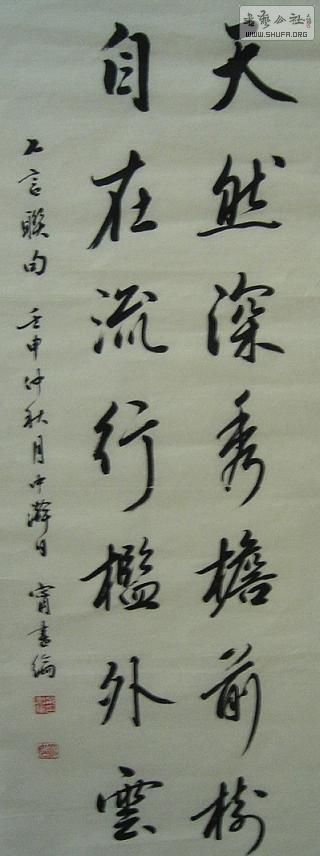 天然深秀檐前樹
自在流行檻外雲
七言聯句 壬申仲秋月中澣日 甯書綸
书艺公社
WWW.SHUFA.ORG